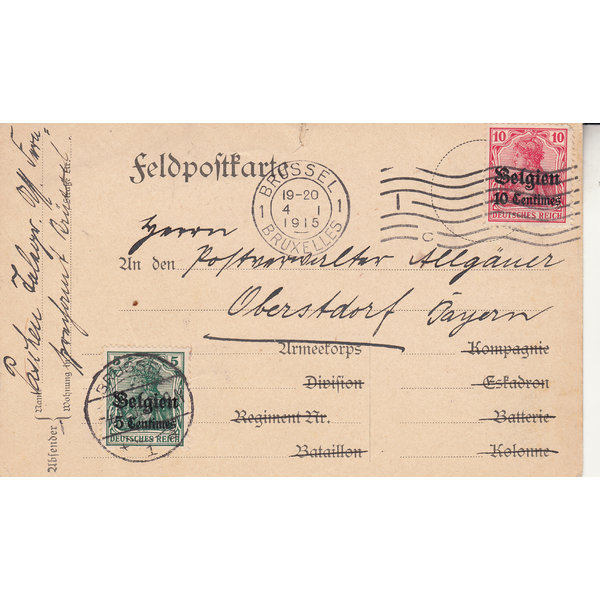 Feldpostkarte
BRÜSSEL
19-20
1 4 1 1
1915
BRUXELLES
C
10 10
Belgien
10 Centimes
DEUTSCHES REICH
Herrn
An den Postverwalter Allgäuer
Oberstdorf Bayern
5
Belgien
5 Centimes
DEUTSCHES REICH
1
Armeekorps Kompagnie
Division Eskadron
Regiment Nr. Batterie
Bataillon Kolonne
Absender
Wohnung